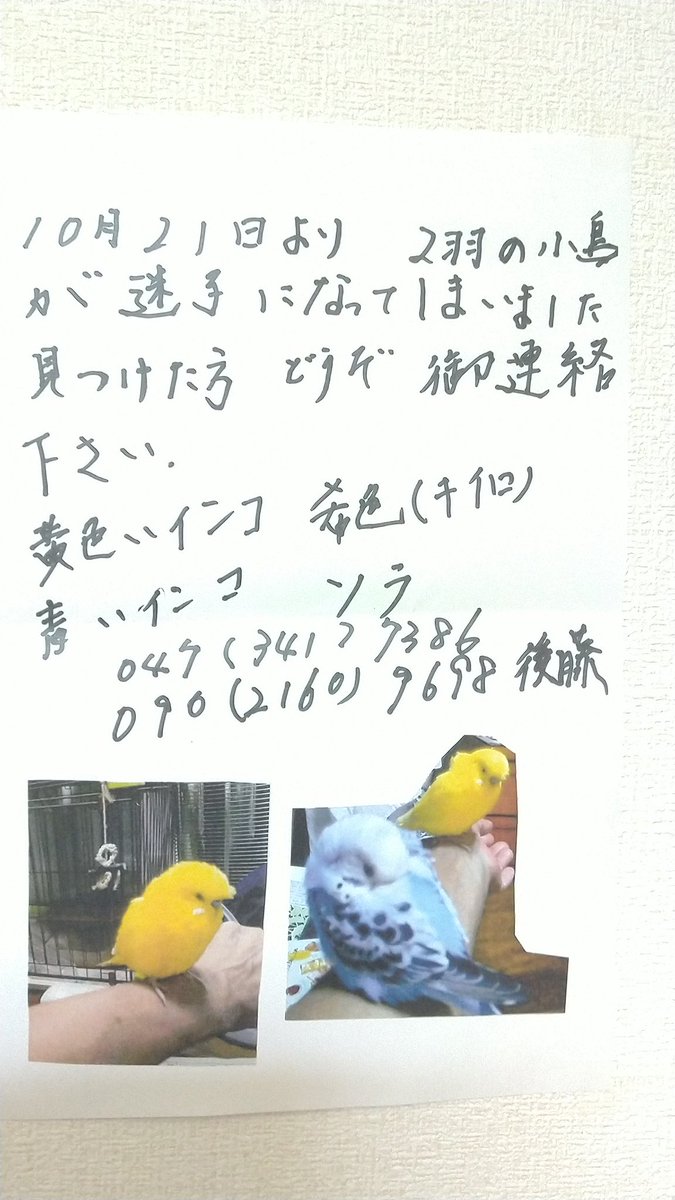 10月21日より 2羽の小鳥
が迷子になってしまいました
見つけた方 どうぞ 御連絡
下さい.
黄色いインコ 希色(キイロ)
青いインコ ソラ
047(341)7386
090(2160)9698 後藤